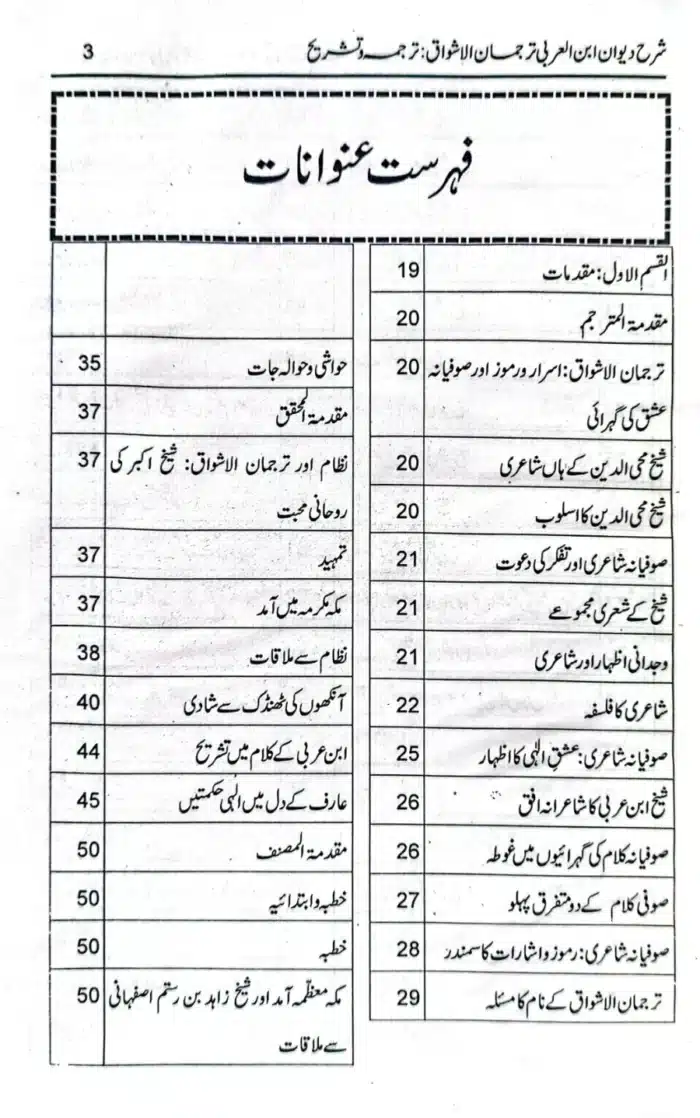 شرح دیوان ابن العربی ترجمان الاشواق: ترجمہ و تشریح 3
فہرست عنوانات
القسم الاول: مقدمات 19
مقدمۃ المترجم 20
ترجمان الاشواق: اسرار و رموز اور صوفیانہ 20
عشق کی گہرائی
شیخ محی الدین کے ہاں شاعری 20
شیخ محی الدین کا اسلوب 20
صوفیانہ شاعری اور تفکر کی دعوت 21
شیخ کے شعری مجموعے 21
وجدانی اظہار اور شاعری 21
شاعری کا فلسفہ 22
صوفیانہ شاعری: عشقِ الٰہی کا اظہار 25
شیخ ابن عربی کا شاعرانہ افق 26
صوفیانہ کلام کی گہرائیوں میں غوطہ 26
صوفی کلام کے دو متفرق پہلو 27
صوفیانہ شاعری: رموز و اشارات کا سمندر 28
ترجمان الاشواق کے نام کا مسئلہ 29
حواشی و حوالہ جات 35
مقدمۃ المحقق 37
نظام اور ترجمان الاشواق: شیخ اکبر کی 37
روحانی محبت
تمہید 37
مکہ مکرمہ میں آمد 37
نظام سے ملاقات 38
آنکھوں کی ٹھنڈک سے شادی 40
ابن عربی کے کلام میں تشریح 44
عارف کے دل میں الٰہی حکمتیں 45
مقدمۃ المصنف 50
خطبہ و ابتدائیہ 50
خطبہ 50
مکہ معظّمہ آمد اور شیخ زاہد بن رستم اصفہانی 50
سے ملاقات